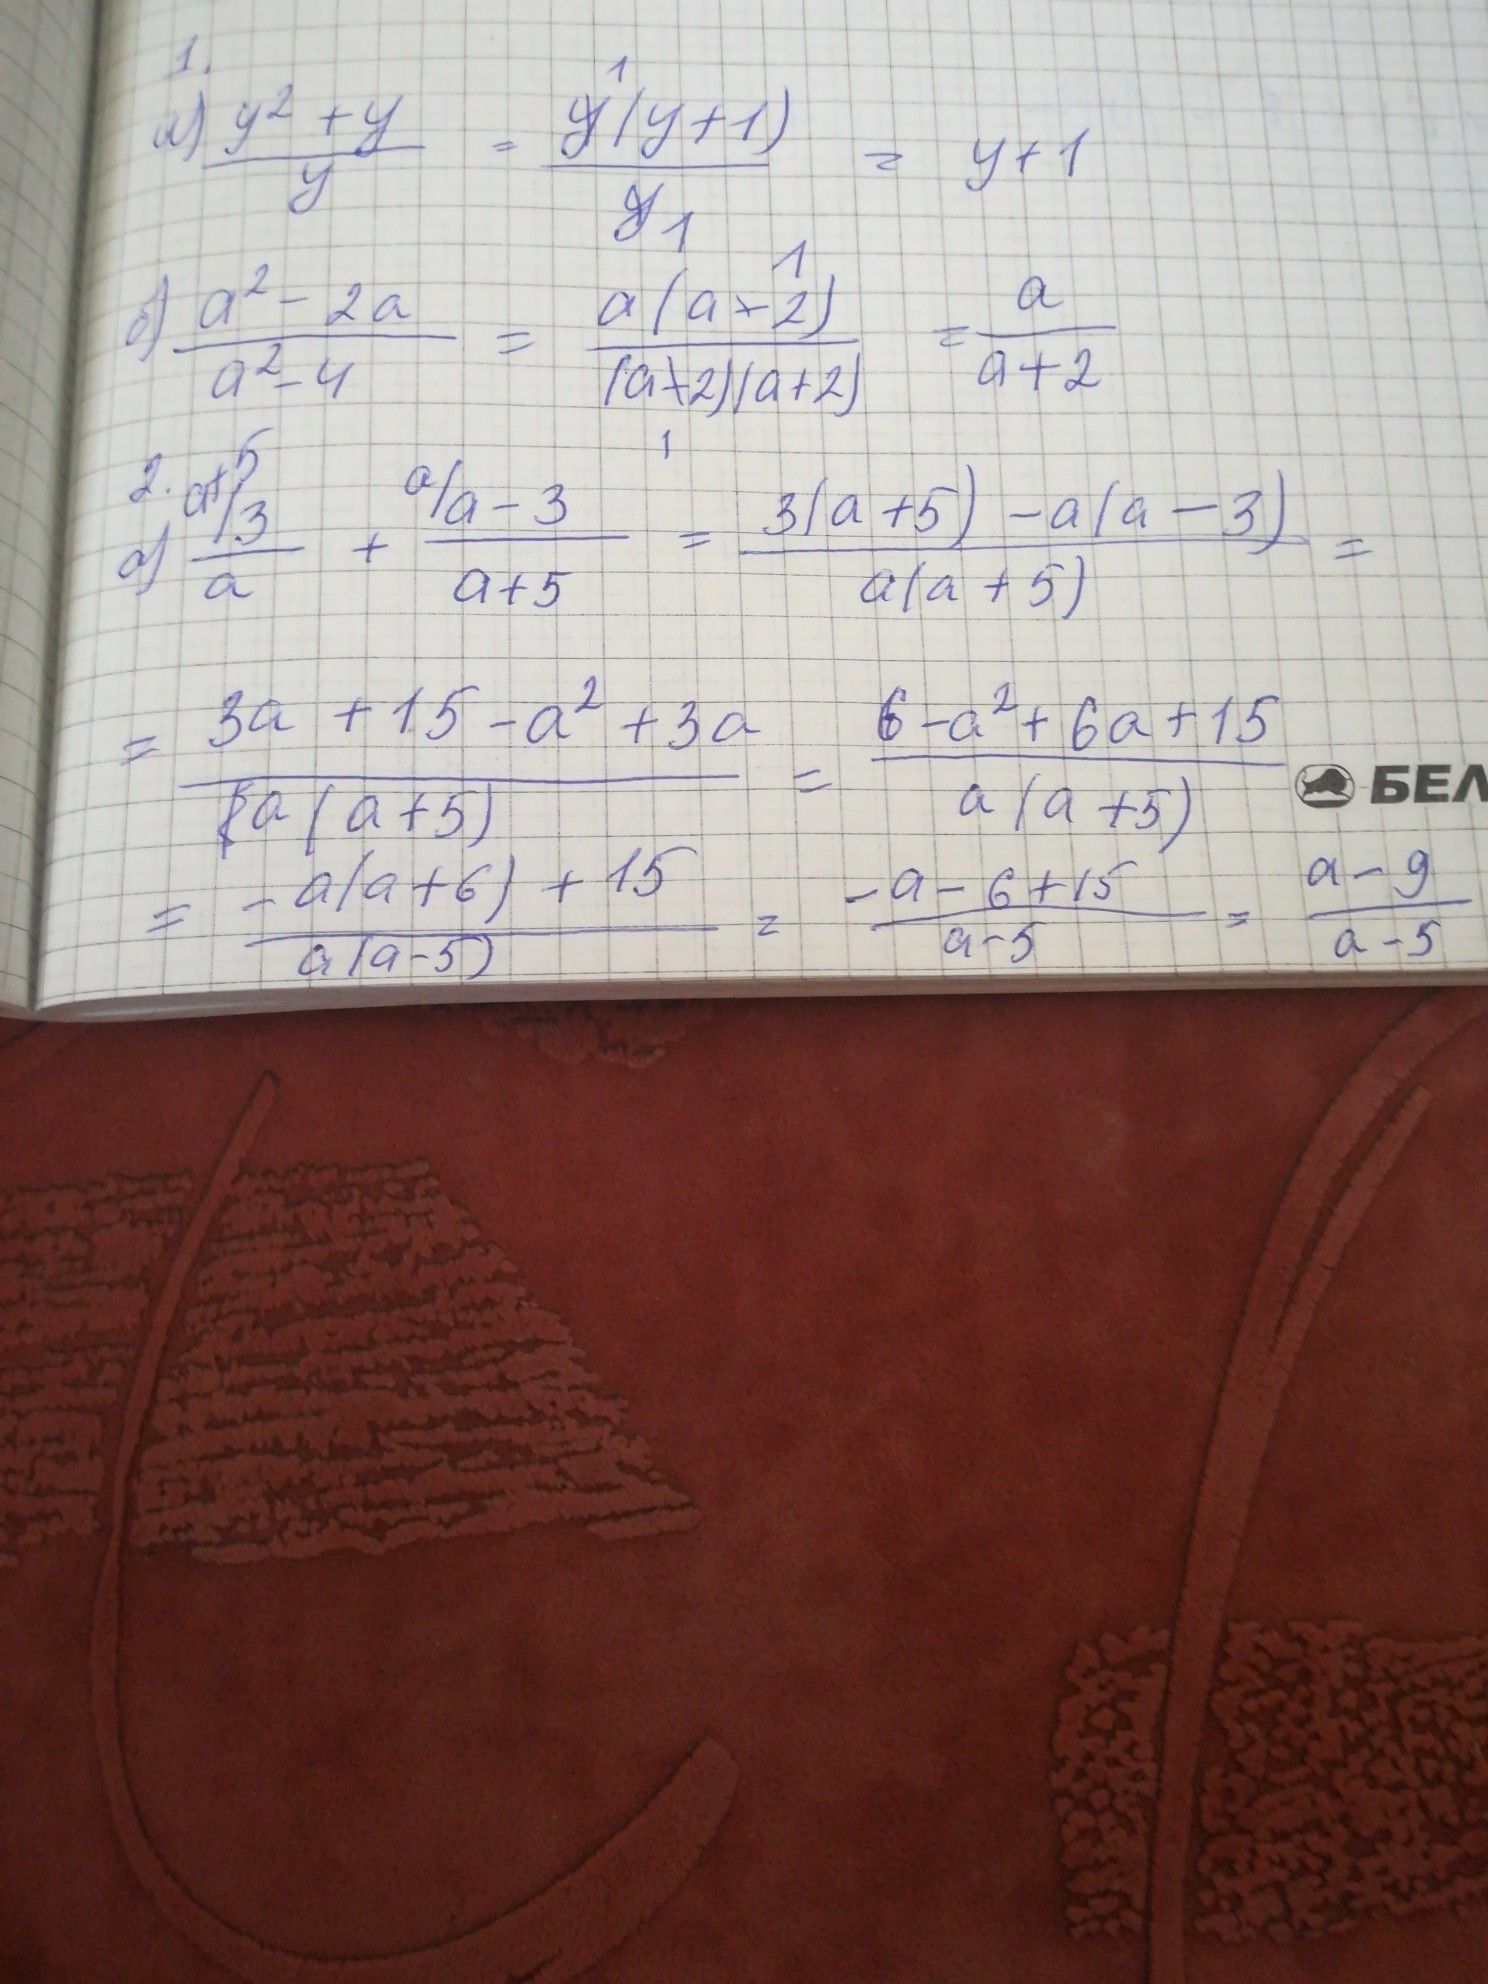 1.
а) y²+y/y = y(y+1)/y = y+1
1
1
б) a²-2a/a²-4 = a(a-2)/(a-2)(a+2) = a/a+2
1
1
2.
а) a+5/3/a + a/a-3/a+5 = 3(a+5)-a(a-3)/a(a+5) =
= 3a+15-a²+3a/a(a+5) = 6-a²+6a+15/a(a+5)
БЕЛ
= -a(a+6)+15/a(a-5) = -a-6+15/a-5 = a-9/a-5